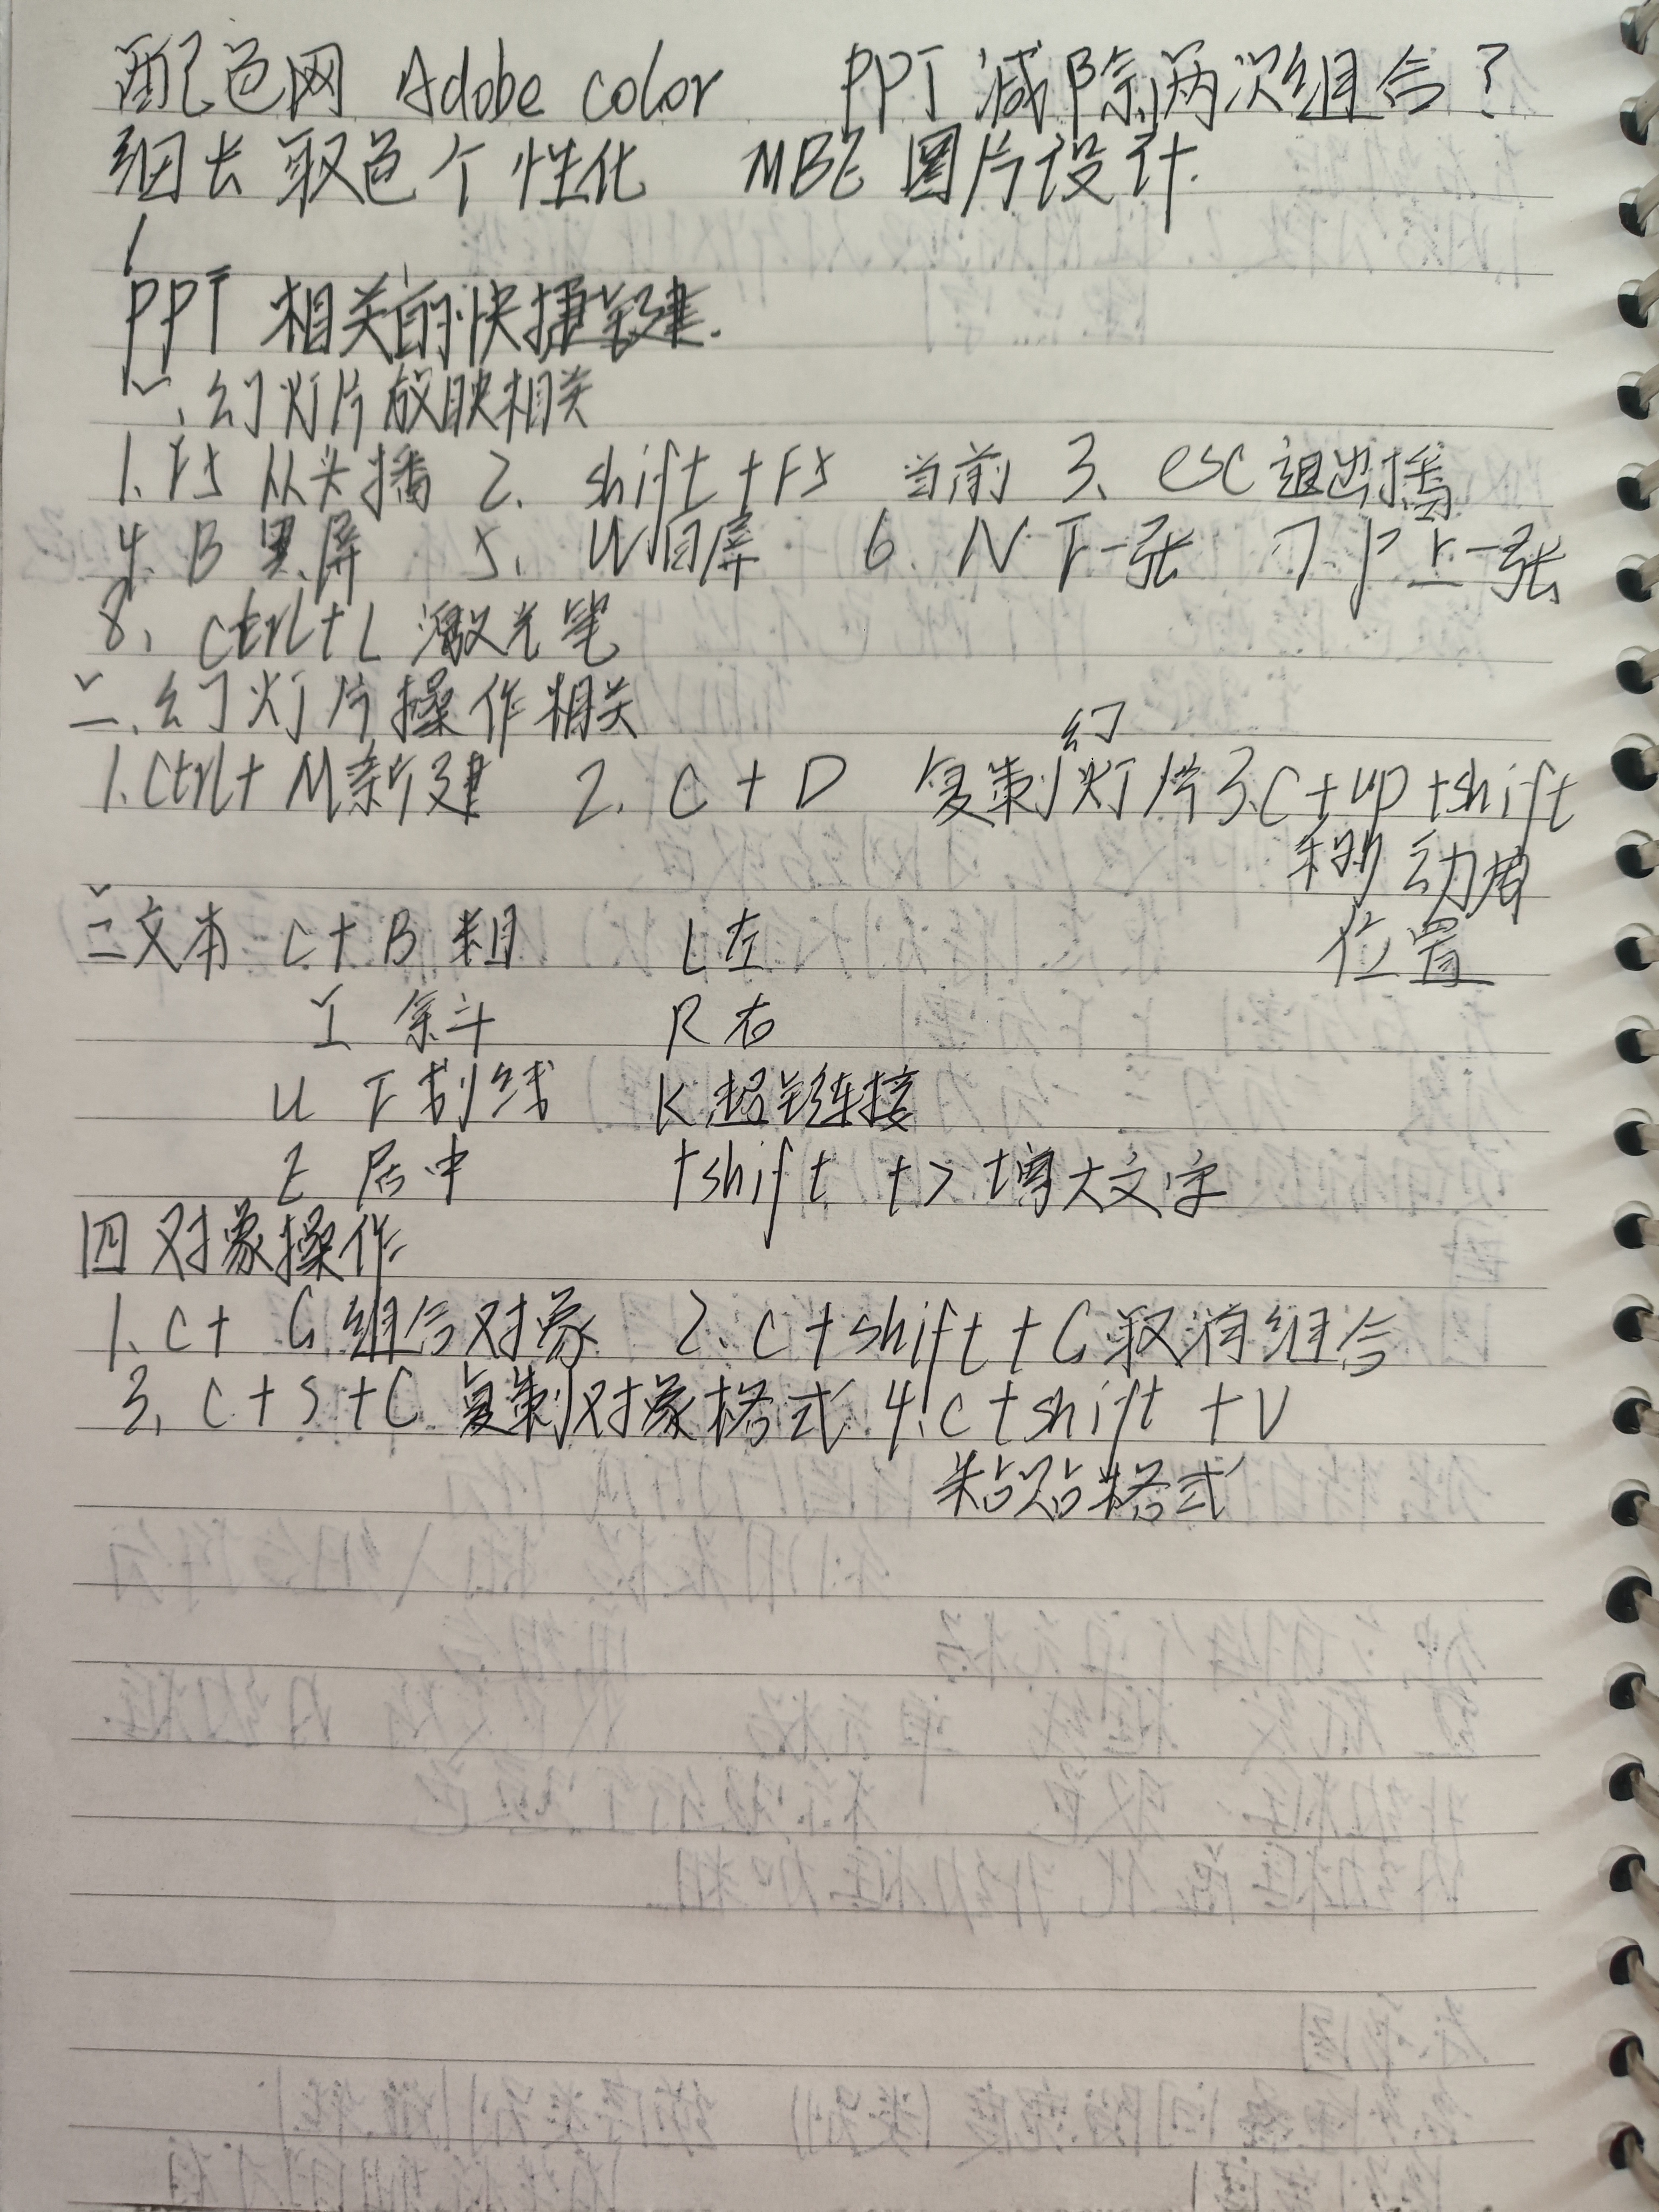 配色网 Adobe color PPT 减除两次组合?
细长 取色个性化 MBE 图片设计.
PPT 相关的快捷键.
一、幻灯片放映相关
1. F5 从头播 2. shift + F5 当前 3、esc 退出播
4. B 黑屏 5、W 白屏 6. N 下一张 7. P 上一张
8、ctrl+L 激光笔
二、幻灯片操作相关
1. Ctrl+ M 新建 2. C + D 复制幻灯片 3. C + up + shift
移动
位置
三文本 C + B 粗 L 左
I 斜 R 右
U 下划线 K 超链连接
E 居中 +shift +> 增大文字
四 对象操作
1. C + G 组合对象 2. C + shift + G 取消组合
3. C + S + C 复制对象格式 4. C + shift + V
粘贴格式